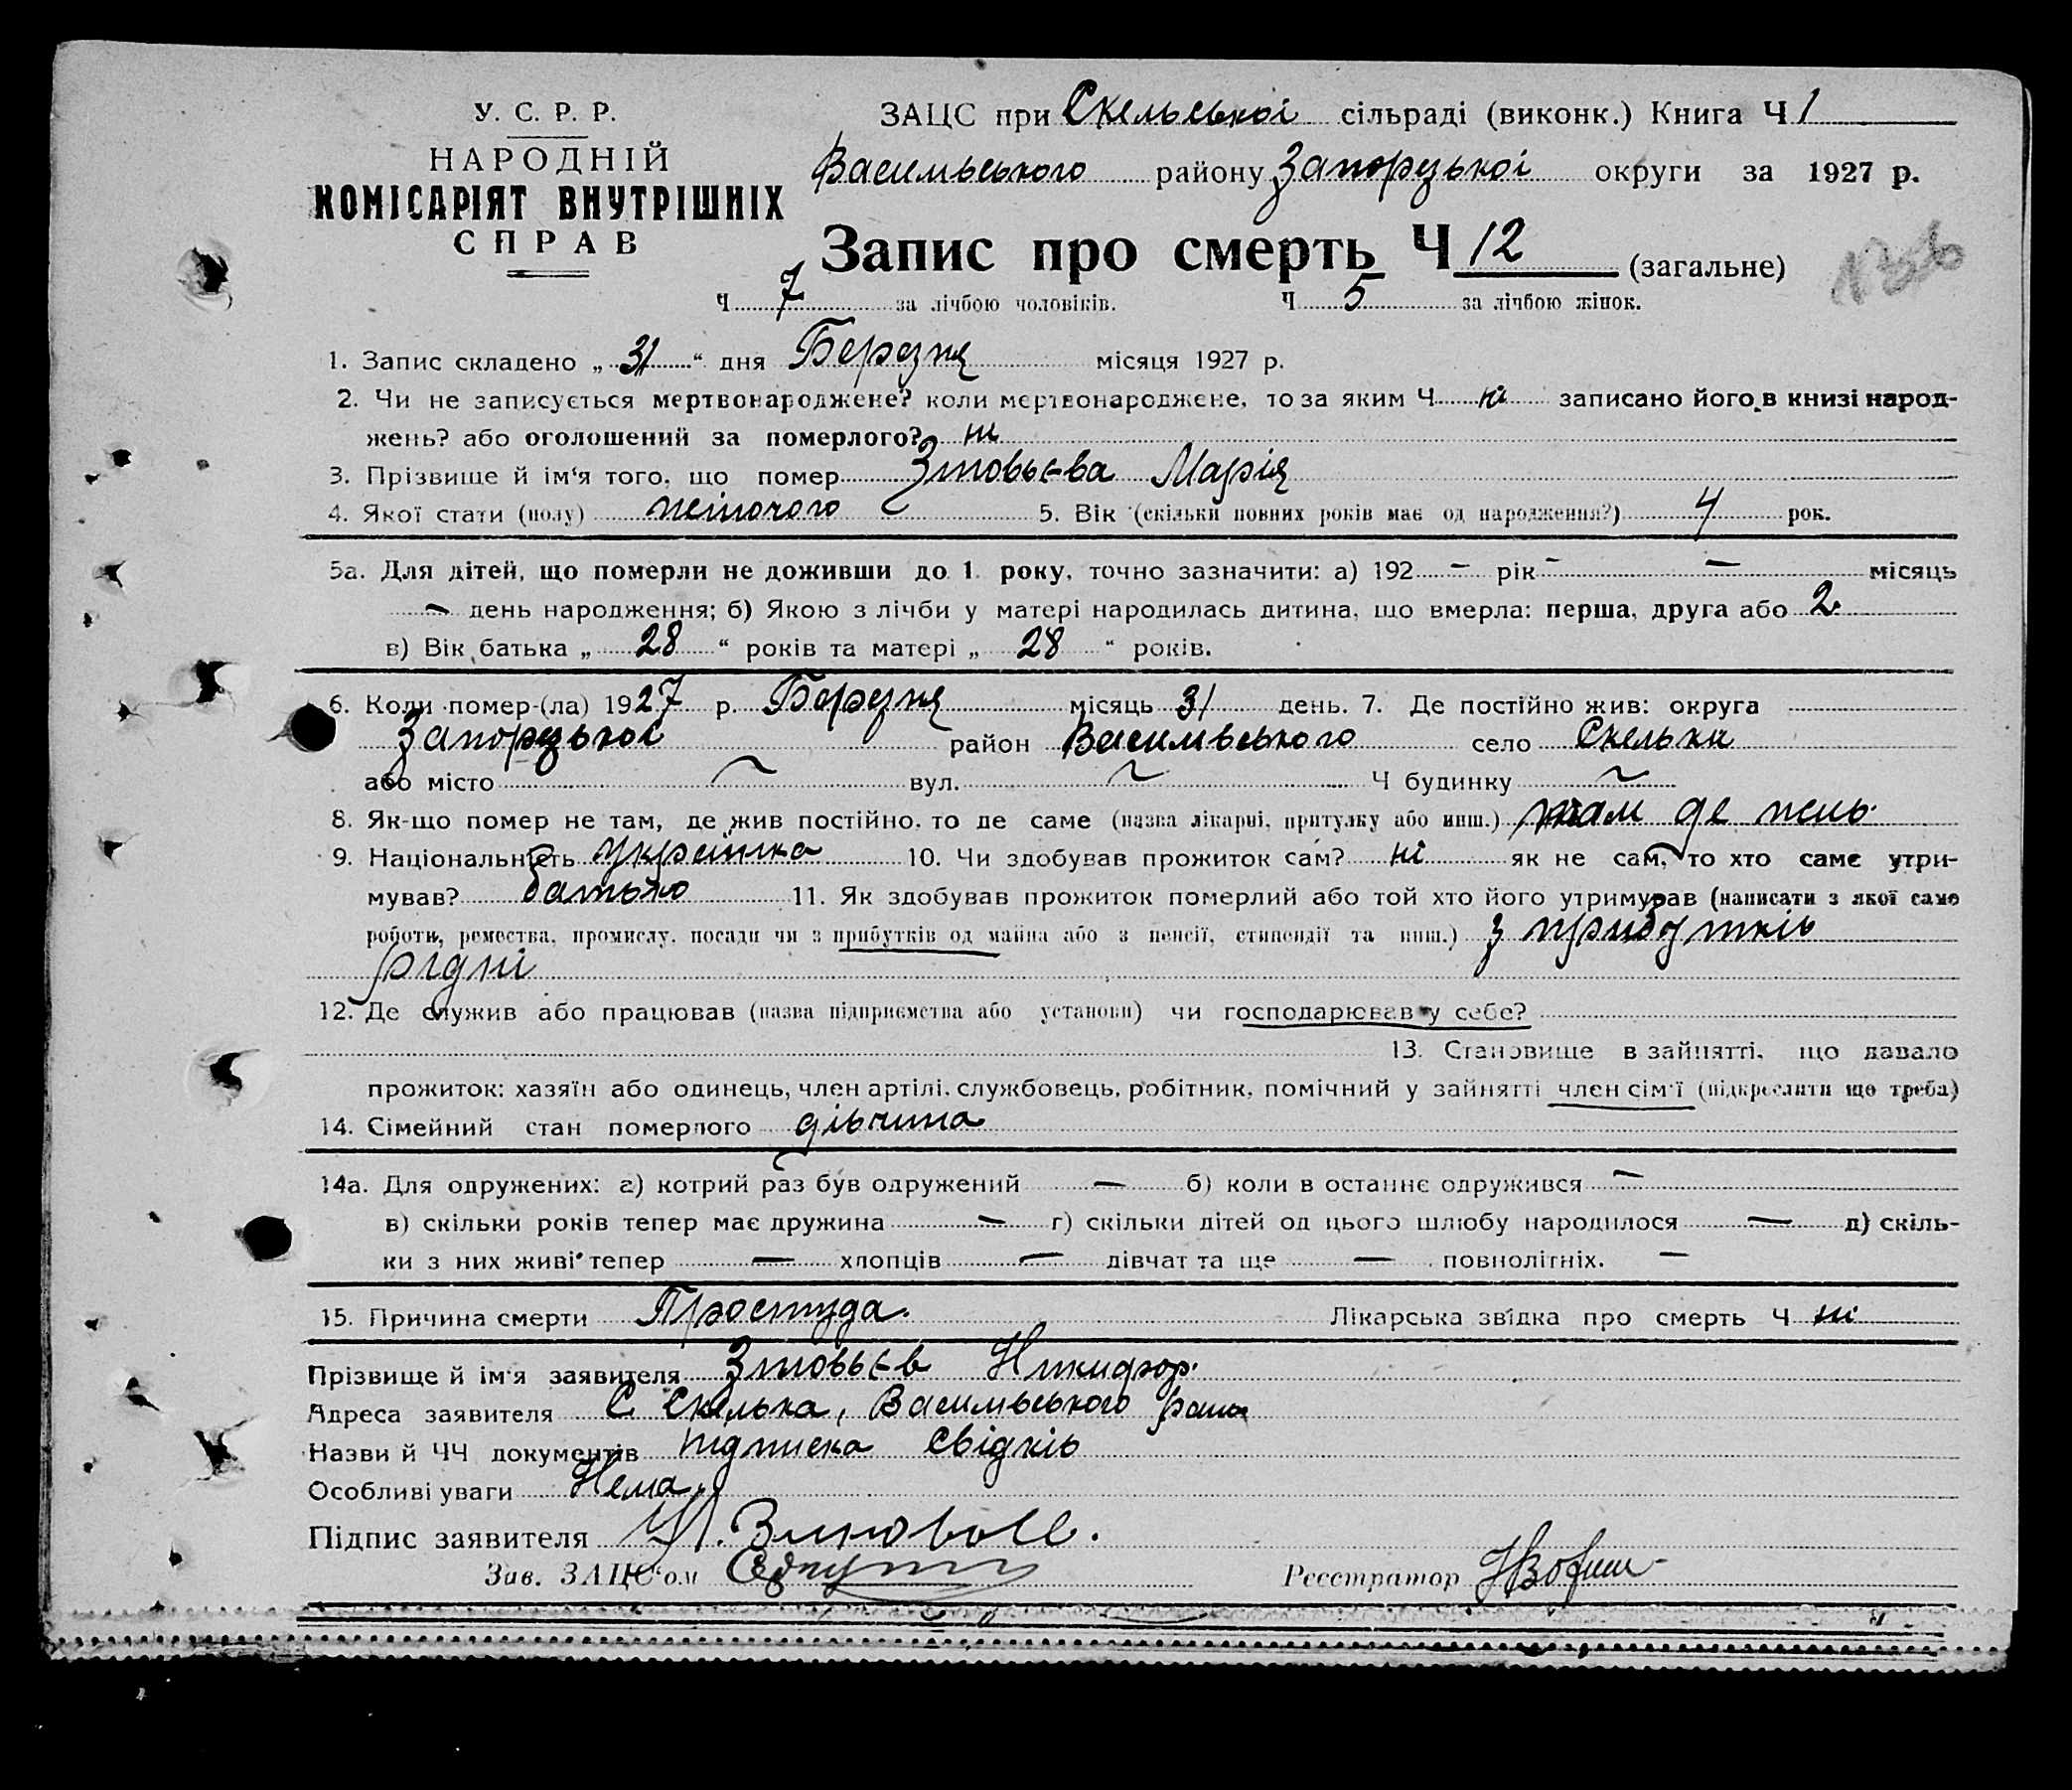 У. С. Р. Р.
НАРОДНІЙ
КОМІСАРІЯТ ВНУТРІШНІХ
СПРАВ
ЗАЦС при Скельської сільраді (виконк.) Книга Ч 1
Васильського району Запорізької округи за 1927 р.
Запис про смерть Ч 12 (загальне)
136
Ч 7 за лічбою чоловіків. Ч 5 за лічбою жінок.
1. Запис складено „ 31 “ дня Березня місяця 1927 р.
2. Чи не записується мертвонароджене? коли мертвонароджене, то за яким Ч ні записано його в книзі народ-
жень? або оголошений за померлого? ні
3. Прізвище й ім‘я того, що помер Зіновьєва Марія
4. Якої стати (полу) жіночого 5. Вік (скільки повних років має од народження?) 4 рок.
5а. Для дітей, що померли не доживши до 1 року, точно зазначити: а) 192 – рік – – місяць
– день народження; б) Якою з лічби у матері народилась дитина, що вмерла: перша, друга або 2
в) Вік батька „ 28 “ років та матері „ 28 “ років.
6. Коли помер-(ла) 1927 р. Березня місяць 31 день. 7. Де постійно жив: округа
Запорізької район Васильського село Скельки
або місто ~ вул. ~ Ч будинку ~
8. Як-що помер не там, де жив постійно, то де саме (назва лікарні, притулку або инш.) там де
9. Національність українка 10. Чи здобував прожиток сам? ні як не сам, то хто саме утри-
мував? батько 11. Як здобував прожиток померлий або той хто його утримував (написати з якої саме
роботи, ремества, промислу, посади чи з прибутків од майна або з пенсії, стипендії та инш.) з прибутків
рідні
12. Де служив або працював (назва підприємства або установи) чи господарював у себе?
13. Становище в зайнятті, що давало
прожиток: хазяїн або одинець, член артілі, службовець, робітник, помічний у зайнятті член сім‘ї (підкреслити що треба)
14. Сімейний стан померлого дівчина
14а. Для одружених: а) котрий раз був одружений — б) коли в останнє одружився —
в) скільки років тепер має дружина — г) скільки дітей од цього шлюбу народилося — д) скіль-
ки з них живі тепер — хлопців — дівчат та ще — повнолітніх. —
15. Причина смерти Простуда. Лікарська звідка про смерть Ч ні
Прізвище й ім‘я заявителя Зіновьєв Никифор.
Адреса заявителя С. Скелька, Васильського
Назви й ЧЧ документів Підписка свідків
Особливі уваги Нема.
Підпис заявителя
Зав. ЗАЦС‘ом
Реєстратор